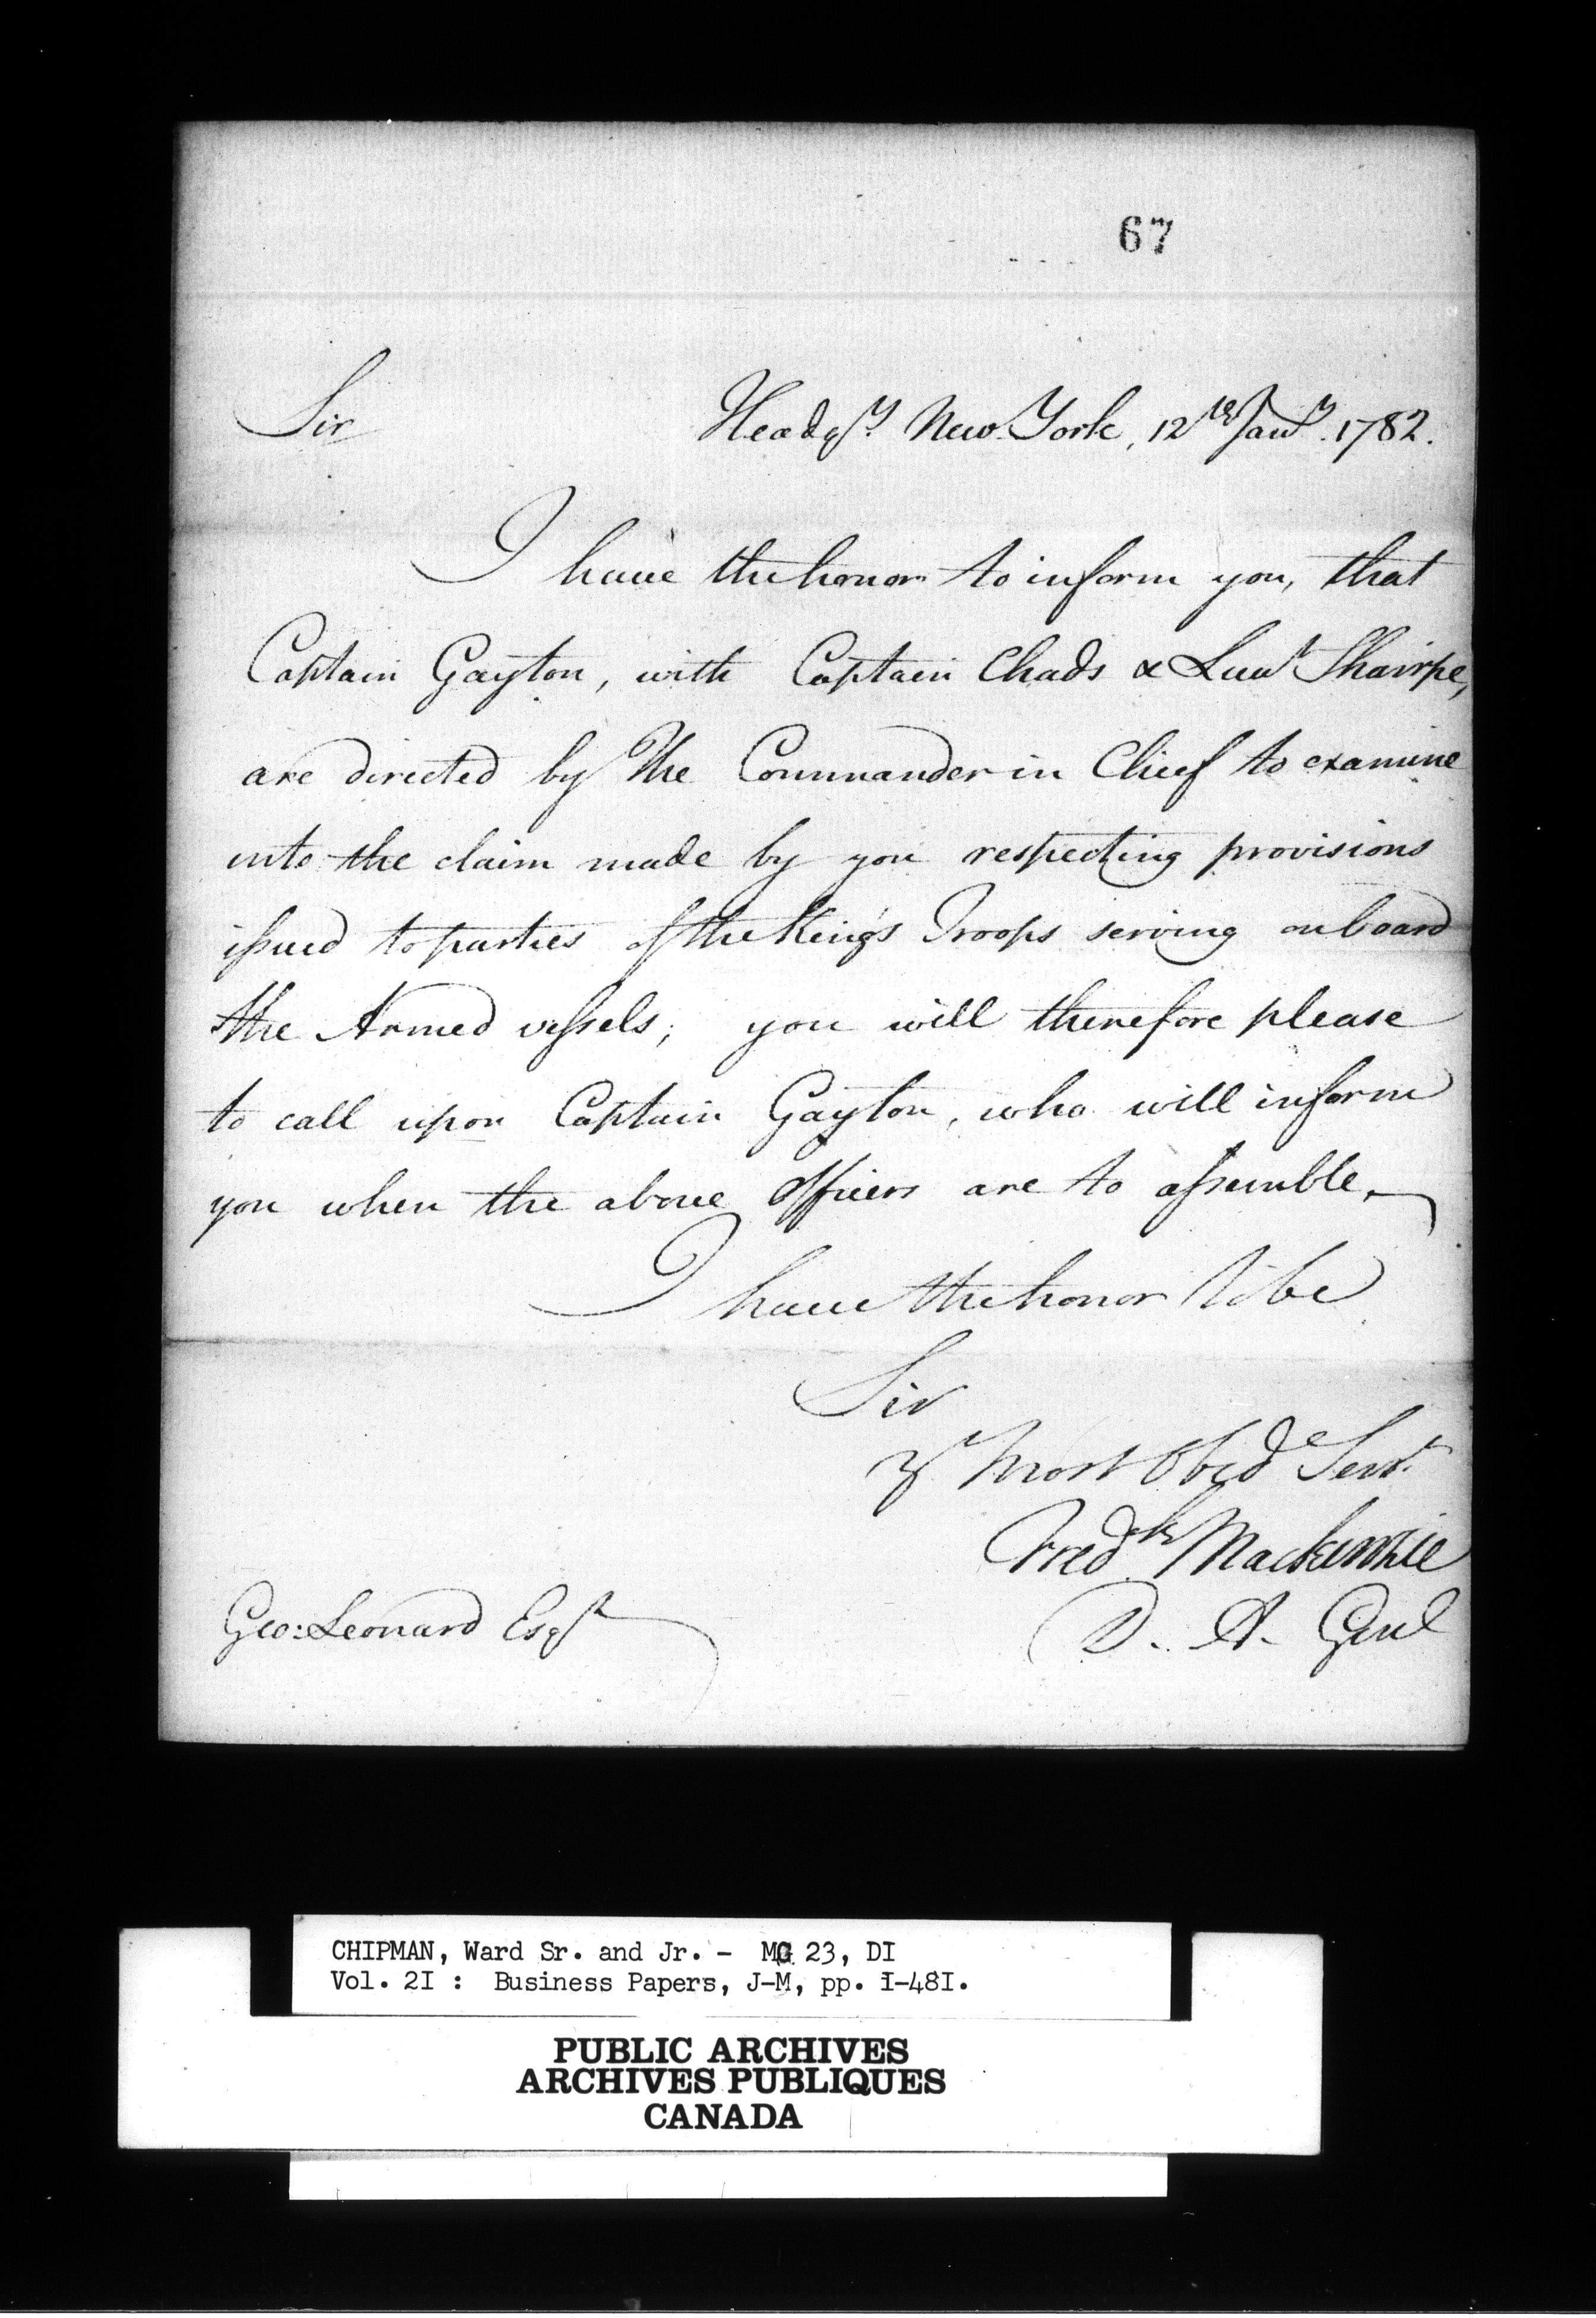 67
Sir
Headqrs. New York, 12th Jany. 1782.
I have the honor to inform you, that
Captain Gayton, with Captain Chads & Lieut Shairpe,
are directed by The Commander in Chief to examine
into the claim made by you respecting provisions
issued to parties of the King's Troops serving on board
the Armed vessels; you will therefore please
to call upon Captain Gayton, who will inform
you when the above Officers are to assemble.
I have the honor to be
Sir
Yr. Most Obedt. Servt.
Fredk. Mackenzie
D. A. Genl
Geo: Leonard Esqr
CHIPMAN, Ward Sr. and Jr. - MG 23, DI
Vol. 2I : Business Papers, J-M, pp. I-48I.
PUBLIC ARCHIVES
ARCHIVES PUBLIQUES
CANADA